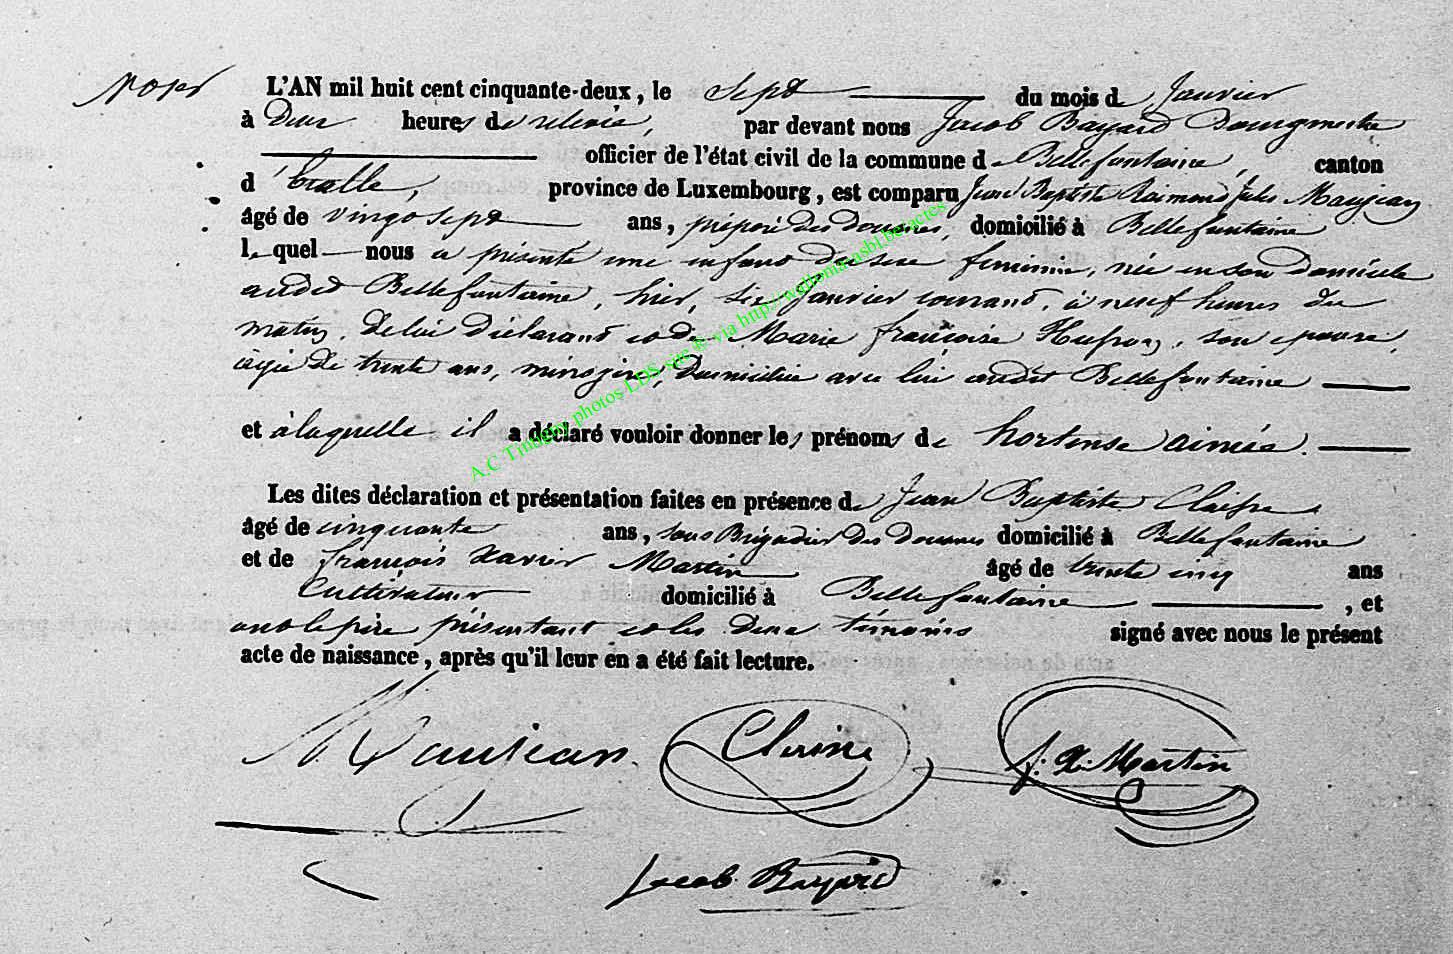 L'AN mil huit cent cinquante-deux, le sept du mois de Janvier
à Deux heures de relevée, par devant nous Jacob Bayard Bourgmestre
officier de l'état civil de la commune de Bellefontaine, canton
d'Etalle, province de Luxembourg, est comparu Jean Baptiste Raimond Jules Maujean
âgé de vingt sept ans, préposé des douanes, domicilié à Bellefontaine
lequel nous a présenté une enfant du sexe féminin, née en son domicile
audit Bellefontaine, hier, six Janvier courant, à neuf heures du
matin, de lui déclarant et de Marie françoise son épouse,
âgée de trente ans, ménagère, domiciliée avec lui audit Bellefontaine
et à laquelle il a déclaré vouloir donner les prénoms de hortense aimée.
Les dites déclaration et présentation faites en présence de Jean Baptiste
âgé de cinquante ans, sous Brigadier des douanes domicilié à Bellefontaine
et de françois Xavier Martin âgé de trente cinq ans
Cultivateur domicilié à Bellefontaine, et
ont le père présentant et les deux témoins signé avec nous le présent
acte de naissance, après qu'il leur en a été fait lecture.
Maujean f. X. Martin
Jacob Bayard
A.C Tintigny photos LDS site @ via http://wallonia-asbl.be/actes